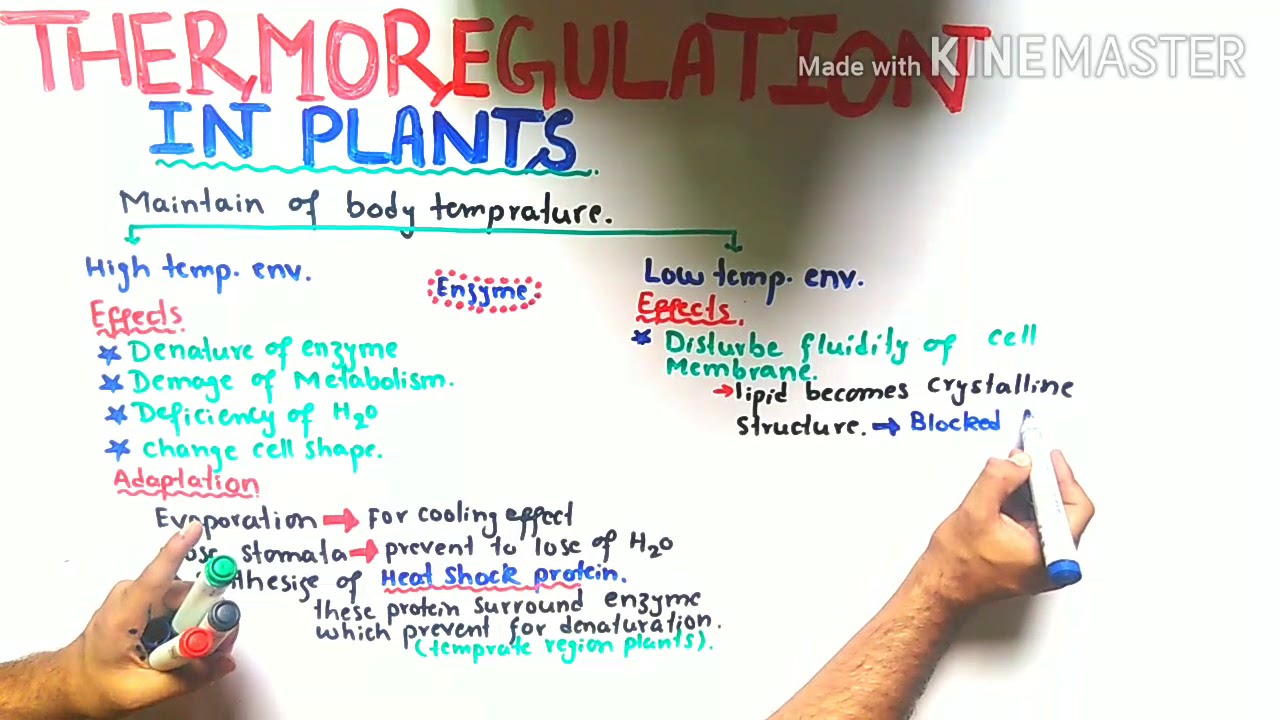 THERMOREGULATION
Made with KINEMASTER
IN PLANTS.
Maintain of body temprature.
High temp. env.
Enzyme
Effects
Denature of enzyme
Demage of Metabolism.
Deficiency of H2O
Change cell shape.
Adaptation
Evaporation → For cooling effect
stomata → prevent to lose of H2O
of Heat Shock protein.
these protein surround enzyme
which prevent for denaturation.
(temprate region plants).
Low temp. env.
Effects.
Disturbe fluidity of cell
Membrane.
→ lipid becomes crystalline
structure. → Blocked